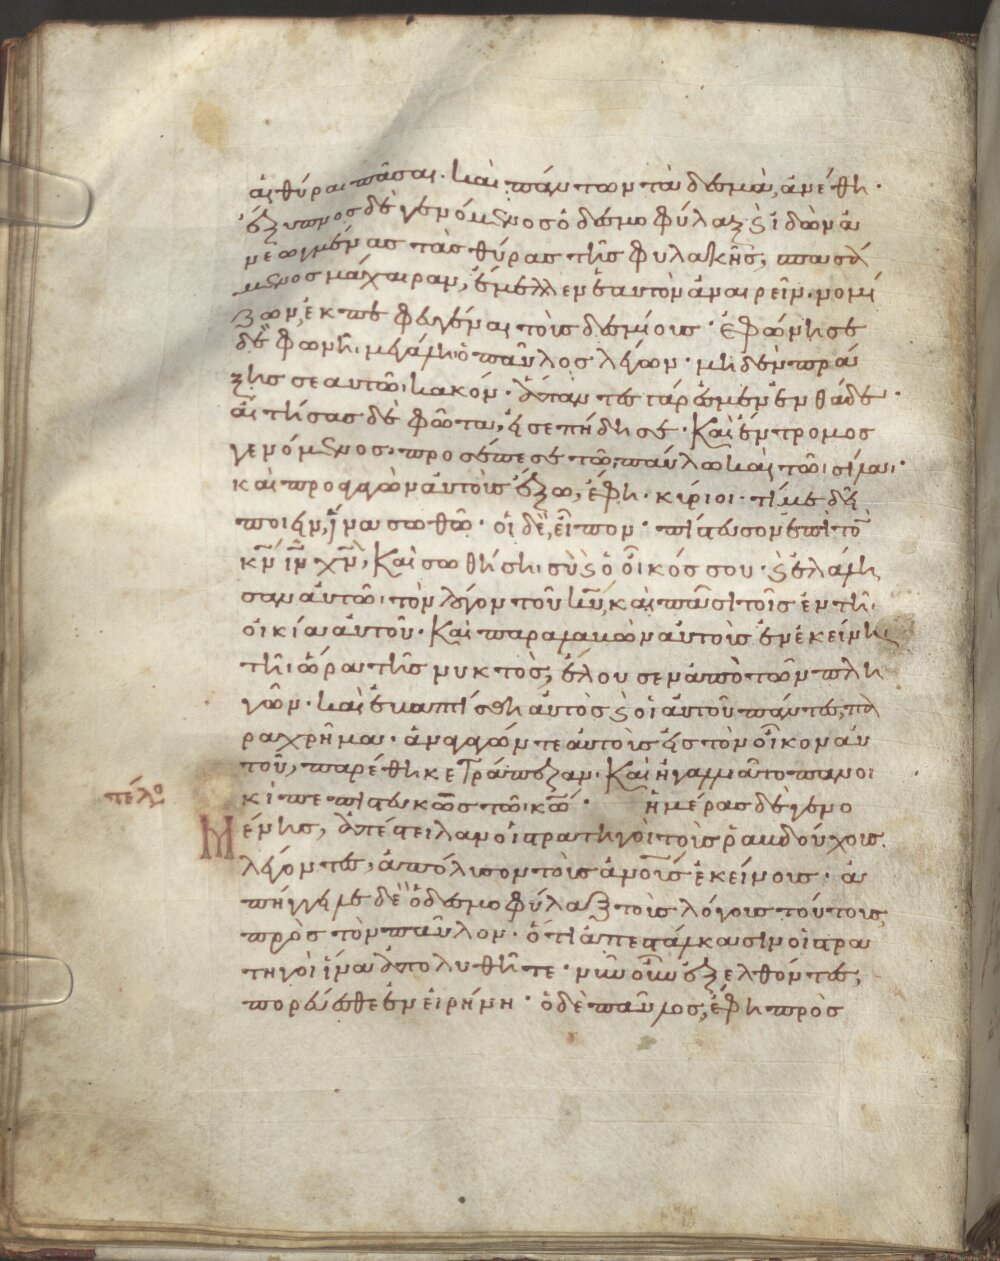 αἱ θύραι πᾶσαι· καὶ πάντων τὰ δεσμὰ, ἀνέθη·
ἔξυπνος δὲ γενόμενος ὁ δεσμοφύλαξ ϛ ἰδὼν ἀ
νεωγμένας τὰς θύρας τῆς φυλακῆς, σπασά
μενος μάχαιραν, ἔμελλεν ἑαυτὸν ἀναιρεῖν· νομί
ζων, ἐκπεφευγέναι τοὺς δεσμίους· ἐφώνησε
δὲ φωνῆ μεγάλη ὁ παῦλος λέγων· μηδὲν πρά
ξης σεαυτῶ κακόν· ἅπαντες γάρ ἐσμεν ἐνθάδε·
αἰτήσας δὲ φῶτα, εἰσεπήδησε· Καὶ ἔντρομος
γενόμενος· προσέπεσε τῶ παύλω καὶ τῶ σίλα·
καὶ προαγαγὼν αὐτοὺς ἔξω, ἔφη· κύριοι· τί με δεῖ
ποιεῖν, ἵνα σωθῶ· οἱ δὲ, εἶπον· πίστευσον ἐπὶ τὸν
κν ιν χν, Καὶ σωθήση σὺ ϛ ὁ οἶκός σου· ϛ ἐλάλη
σαν αὐτῶ τὸν λόγον τοῦ κυ, καὶ πᾶσι τοῖς ἐν τῆ
οἰκία αὐτοῦ· Καὶ παραλαβὼν αὐτοὺς ἐν ἐκείνη
τῆ ὥρα τῆς νυκτὸς, ἔλουσεν ἀπὸ τῶν πλη
γῶν· καὶ ἐβαπτίσθη αὐτὸς ϛ οἱ αὐτοῦ πάντες πα
ραχρῆμα· ἀναγαγών τε αὐτοὺς εἰς τὸν οἶκον αὐ
τοῦ, παρέθηκε τράπεζαν· Καὶ ἠγαλλιᾶτο πανοι
τέλος κὶ πεπιστευκὼς τῶ κω· ἡμέρας δὲ γενο
μένης, ἀπέστειλαν οἱ στρατηγοὶ τοὺς ῥαβδούχους
λέγοντες, ἀπόλυσον τοὺς ανους ἐκείνους· ἀ
πήγγειλε δὲ ὁ δεσμοφύλαξ τοὺς λόγους τούτους
πρὸς τὸν παῦλον· ὅτι ἀπεστάλκασιν οἱ στρα
τηγοὶ ἵνα ἀπολυθῆτε· νῦν οὖν ἐξελθόντες,
πορεύεσθε ἐν εἰρήνη· ὁ δὲ παῦλος, ἔφη πρὸς